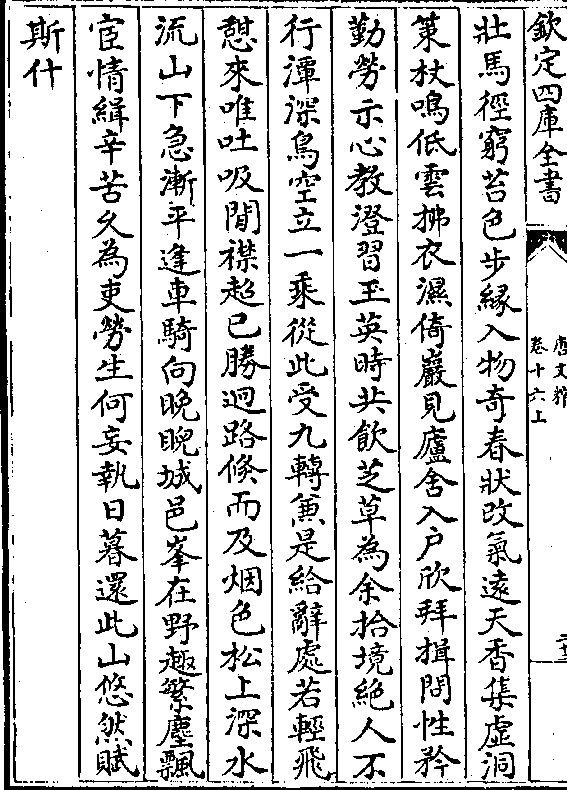 欽定四庫全書
唐文粹
卷十六上
壯馬徑窮苔色步緣入物奇春狀改氣遠天香集虛洞
策杖鳴低雲拂衣濕倚巖見廬舍入户欣拜揖問性矜
勤勞示心教澄習玉英時共飲芝草為余拾境絕人不
行潭深鳥空立一乘從此受九轉兼是給辭處若輕飛
憇來唯吐吸閒襟超已勝迥路倏而及烟色松上深水
流山下急漸平逢車騎向晚睨城邑峯在野趣繁塵飄
宦情緝辛苦久為吏勞生何妄執日暮還此山悠然賦
斯什